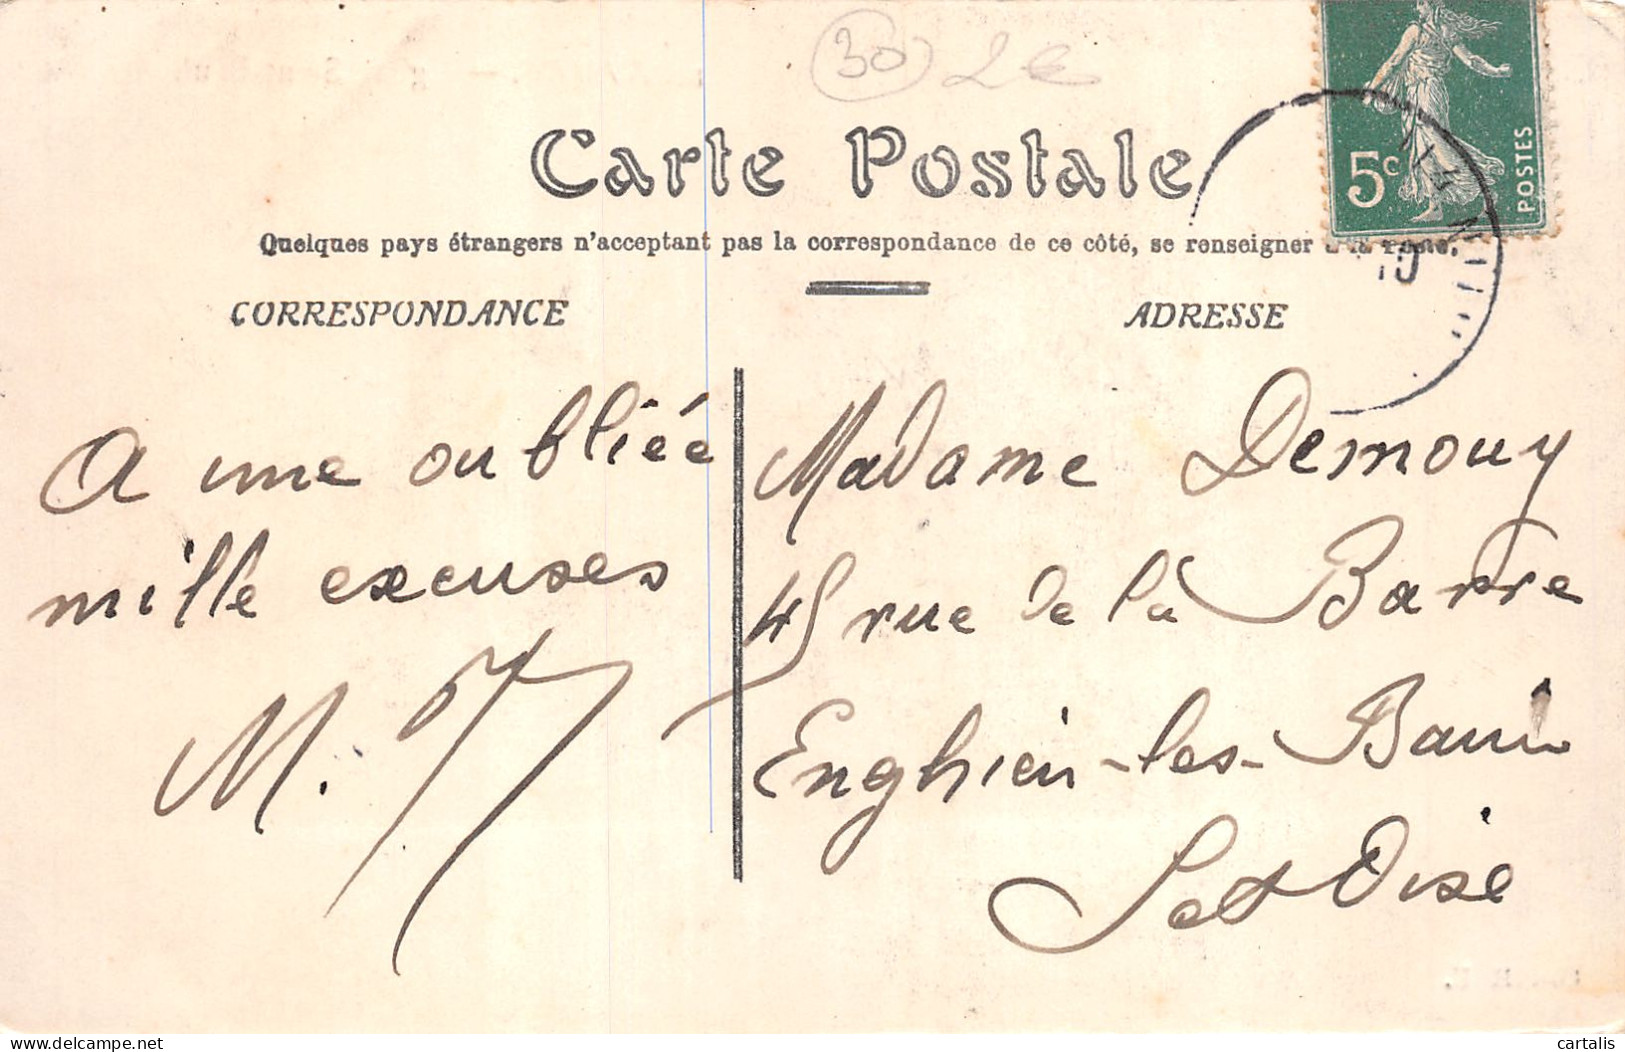 30 2€
Carte Postale
Quelques pays étrangers n'acceptent pas la correspondance de ce côté, se renseigner à la Poste.
5c
POSTES
CORRESPONDANCE
ADRESSE
A une oubliée
mille excuses
M.
Madame Demouy
45 rue de la Barre
Enghien-les-Bains
S et Oise
delcampe.net
cartalis